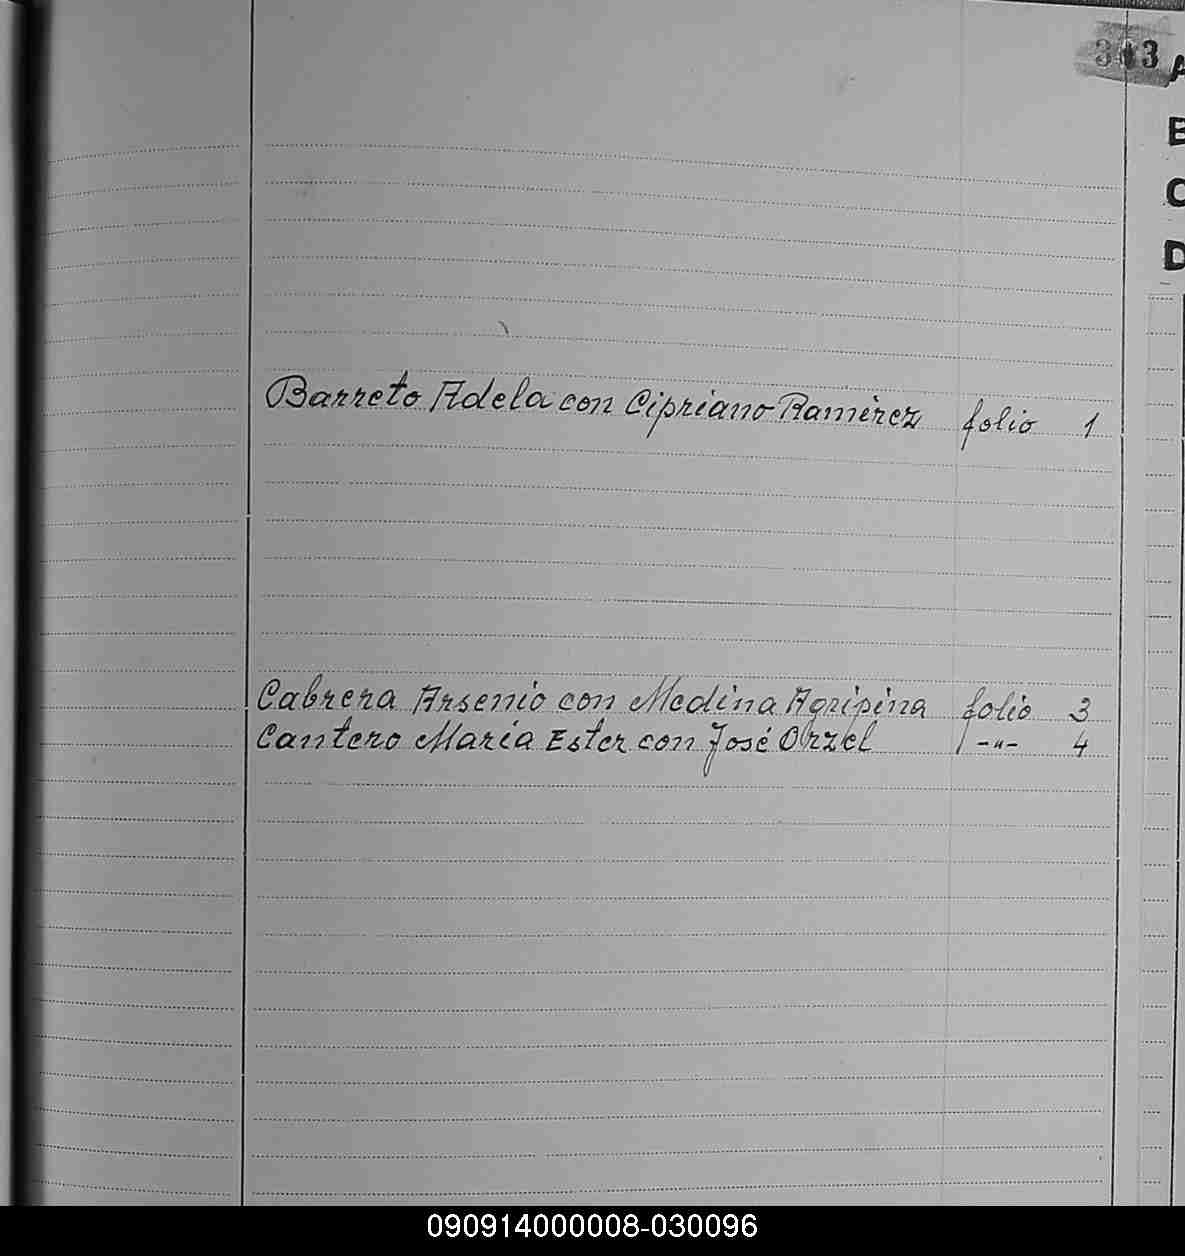 303
A
B
C
D
Barreto Adela con Cipriano Ramírez folio 1
Cabrera Arsenio con Medina Agripina folio 3
Cantero María Ester con José Orzel -"- 4
090914000008-030096